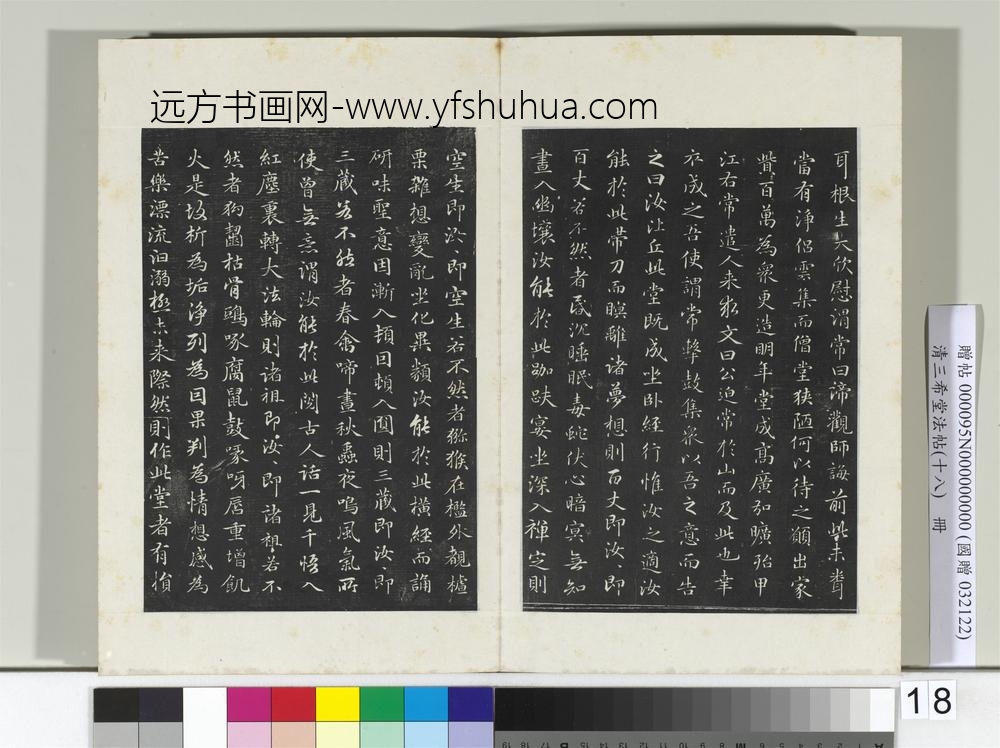 远方书画网-www.yfshuhua.com
耳根生大欣慰謂常曰諦觀師誨前此未聳
當有淨侶雲集而僧堂狹陋何以待之願出家
貲百萬為衆更造明年堂成髙廣加曠殆甲
江右常遣人来求文曰公迫常於山而及此也幸
衣成之吾使謂常擊鼓集衆以吾之意而告
之曰汝比丘此堂既成坐卧經行惟汝之適汝
能於此帶刀而瞑離諸夢想則百丈即汝、即
百丈若不然者昏沉睡眠毒蛇伏心暗冥無知
晝入幽壤汝能於此跏趺宴坐深入禪定則
空生即汝、即空生若不然者獼猴在檻外覩樝
栗雜想變亂坐化異類汝能於此横經而誦
研味聖意因漸入頓因頓入圓則三藏即汝、即
三藏若不然者春禽啼晝秋蟲夜鳴風氣所
使曾無意謂汝能於此閲古人話一見千悟入
紅塵裏轉大法輪則諸祖即汝、即諸祖若不
然者狗齧枯骨鴟啄腐鼠鼓喙呀脣重增飢
火是故析為垢淨列為因果判為情想感為
苦樂漂流汩溺極未来際然則作此堂者有損
贈帖 000095N000000000 (國贈 032122)
清三希堂法帖(十八) 冊
18